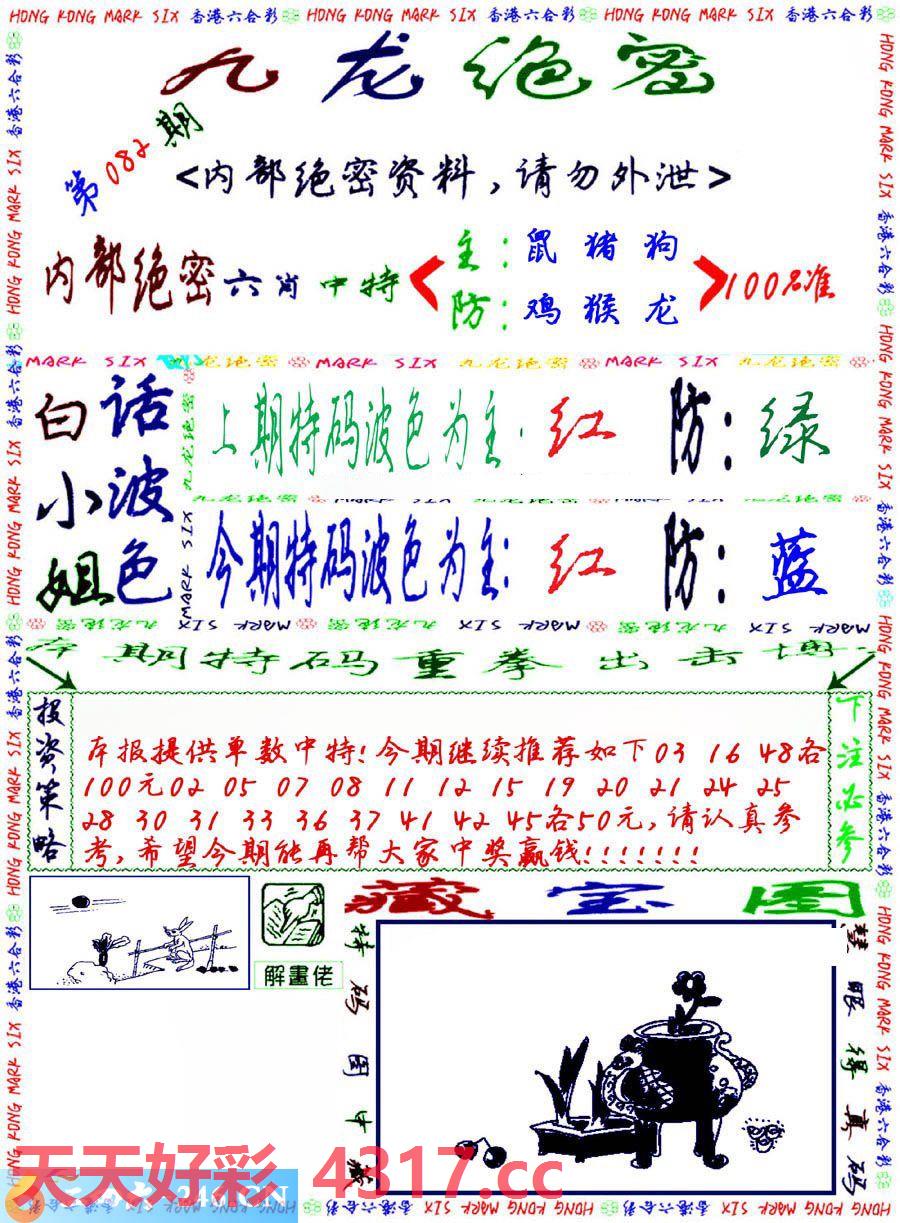 HONG KONG MARK SIX 香港六合彩 HONG KONG MARK SIX 香港六合彩 HONG KONG MARK SIX 香港六合彩
九龙绝密
第082期
<内部绝密资料,请勿外泄>
内部绝密六肖中特
主:鼠猪狗
防:鸡猴龙
100%准
MARK SIX 九龙绝密 MARK SIX 九龙绝密 MARK SIX 九龙绝密
白话
小波
姐色
上期特码波色为主:红 防:绿
今期特码波色为主:红 防:蓝
本期特码重拳出击博
投资策略
本报提供单数中特!今期继续推荐如下03 16 48各
100元02 05 07 08 11 12 15 19 20 21 24 25
28 30 31 33 36 37 41 42 45各50元,请认真参
考,希望今期能再帮大家中奖赢钱!!!!!!!
下注必参
解畫佬
藏宝图
特码图中藏
慧眼得真码
天天好彩 4317.cc
246.CN